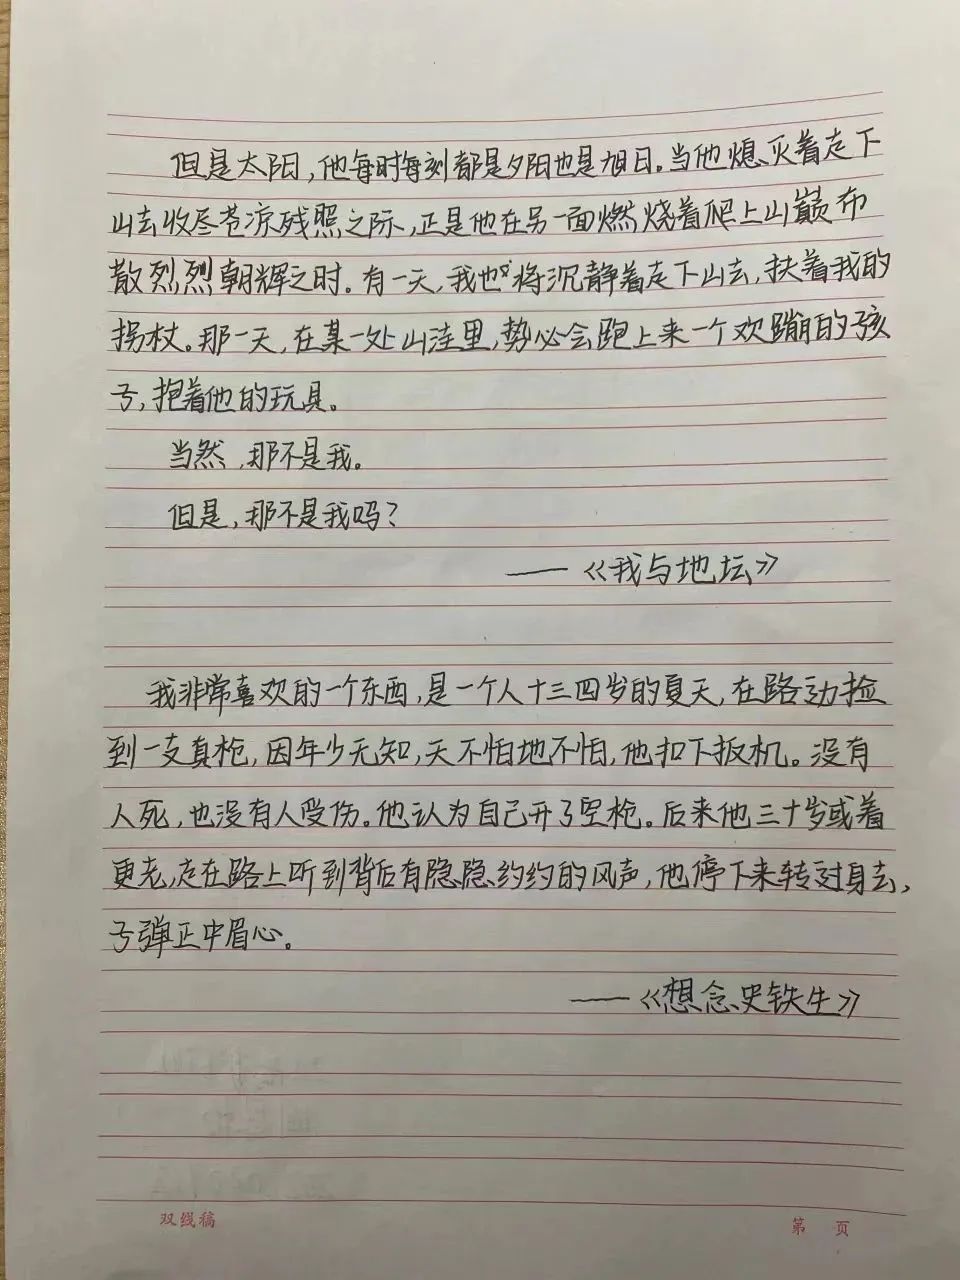 但是太阳，他每时每刻都是夕阳也是旭日。当他熄灭着走下
山去收尽苍凉残照之际，正是他在另一面燃烧着爬上山巅布
散烈烈朝辉之时。有一天，我也将沉静着走下山去，扶着我的
拐杖。那一天，在某一处山洼里，势必会跑上来一个欢蹦的孩
子，抱着他的玩具。
当然，那不是我。
但是，那不是我吗？
——《我与地坛》
我非常喜欢的一个东西，是一个人十三四岁的夏天，在路边捡
到一支真枪，因年少无知，天不怕地不怕，他扣下扳机。没有
人死，也没有人受伤。他认为自己开了空枪。后来他三十岁或着
更老，走在路上听到背后有隐隐约约的风声，他停下来转过身去，
子弹正中眉心。
——《想念史铁生》
双线稿
第 页